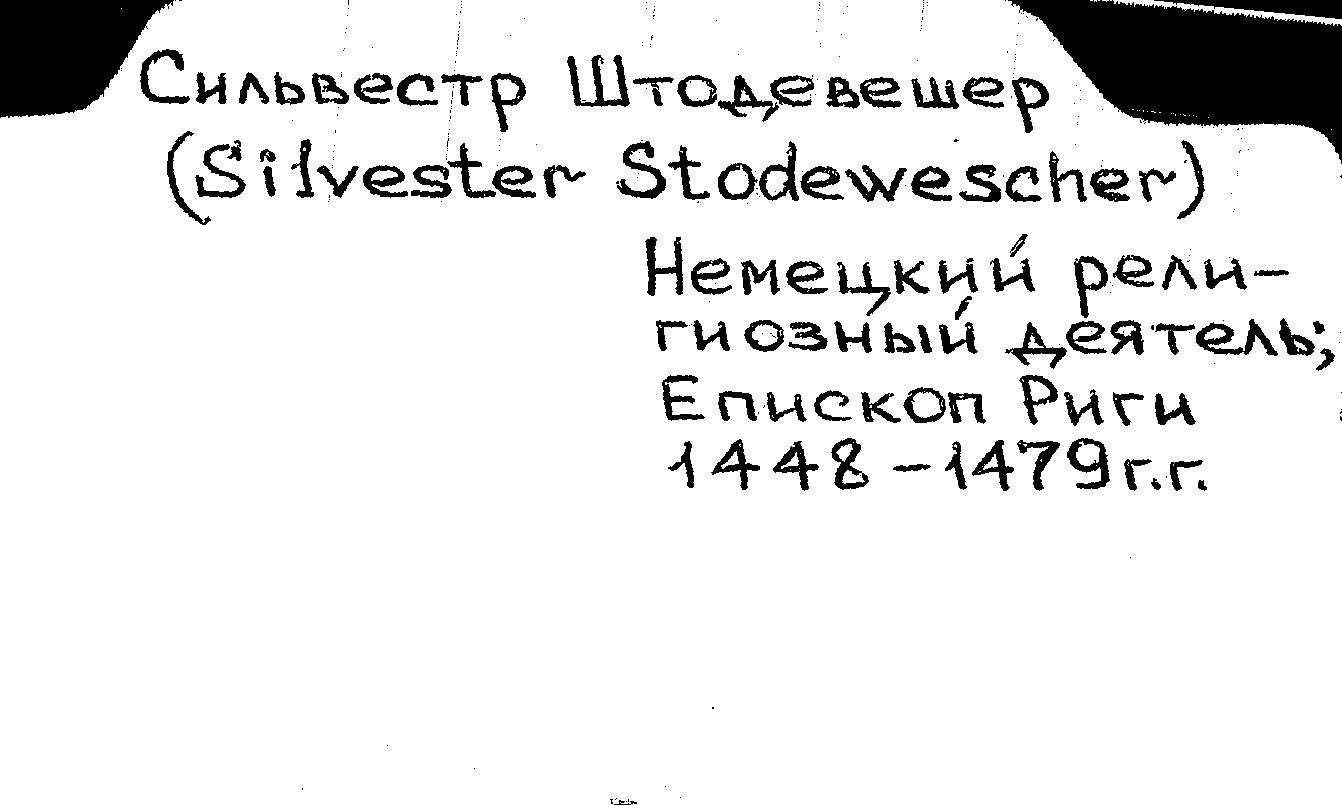 Сильвестр Штодевешер
(Silvester Stodewescher)
Немецкий рели-
гиозный деятель;
Епископ Риги
1448-1479г.г.